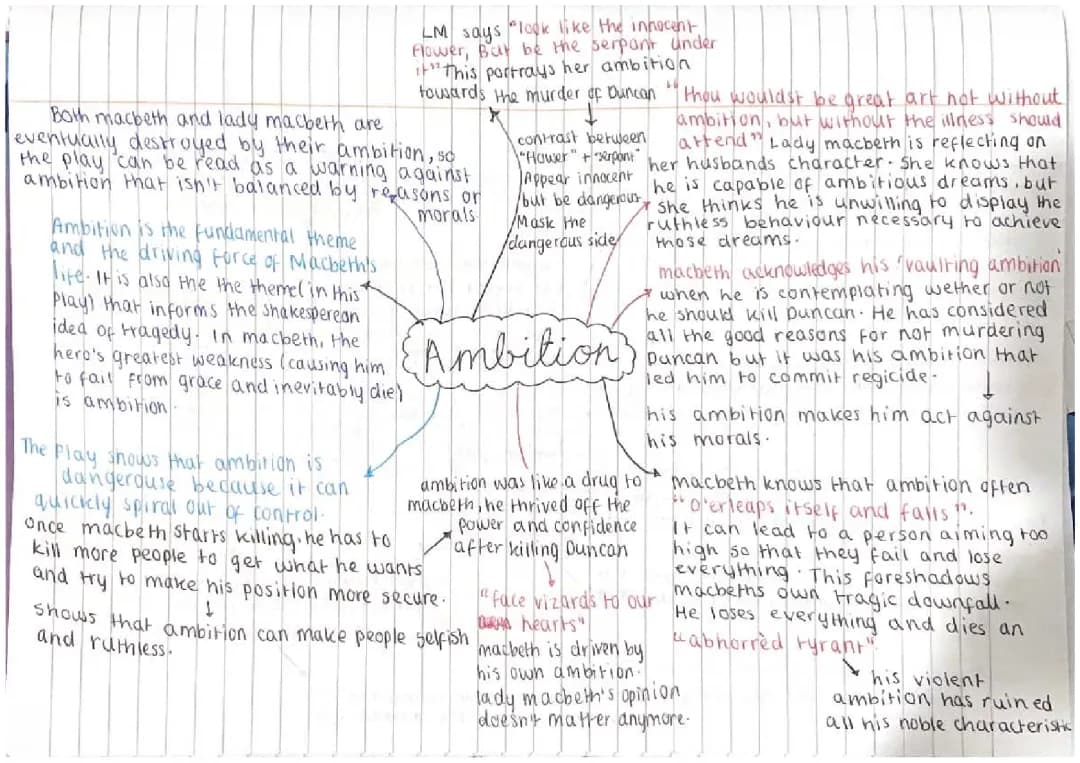 LM says "look like the innocent
flower, But be the serpant under
it" This portrays her ambition
towards the murder of Duncan
contrast between
"flower" + "serpant"
Appear innocent
but be dangerous
Mask the
dangerous side
"thou wouldst be great art not without
ambition, but without the illness should
attend" Lady macbeth is reflecting on
her husbands character. She knows that
he is capable of ambitious dreams, but
she thinks he is unwilling to display the
ruthless behaviour necessary to achieve
those dreams.
Both macbeth and lady macbeth are
eventually destroyed by their ambition, so
the play can be read as a warning against
ambition that isn't balanced by reasons or
morals.
Ambition is the fundamental theme
and the driving force of Macbeth's
life. It is also the the theme (in this
play) that informs the shakesperean
idea of tragedy. In macbeth, the
hero's greatest weakness (causing him
to fall from grace and inevitably die)
is ambition.
macbeth acknowledges his 'vaulting ambition'
when he is contemplating wether or not
he should kill Duncan. He has considered
all the good reasons for not murdering
Duncan but it was his ambition that
led him to commit regicide.
his ambition makes him act against
his morals.
Ambition
The play shows that ambition is
dangerouse because it can
quickly spiral out of control.
once macbeth starts killing, he has to
kill more people to get what he wants
and try to make his position more secure.
shows that ambition can make people selfish
and ruthless.
ambition was like a drug to
macbeth, he thrived off the
power and confidence
after killing Duncan
"face vizards to our
hearts"
macbeth is driven by
his own ambition.
lady macbeth's opinion
doesn't matter anymore.
macbeth knows that ambition often
"o'erleaps itself and falls".
It can lead to a person aiming too
high so that they fail and lose
everything. This foreshadows
macbeths own tragic downfall.
He loses everything and dies an
"abhorrèd tyrant".
his violent
ambition has ruined
all his noble characteristic